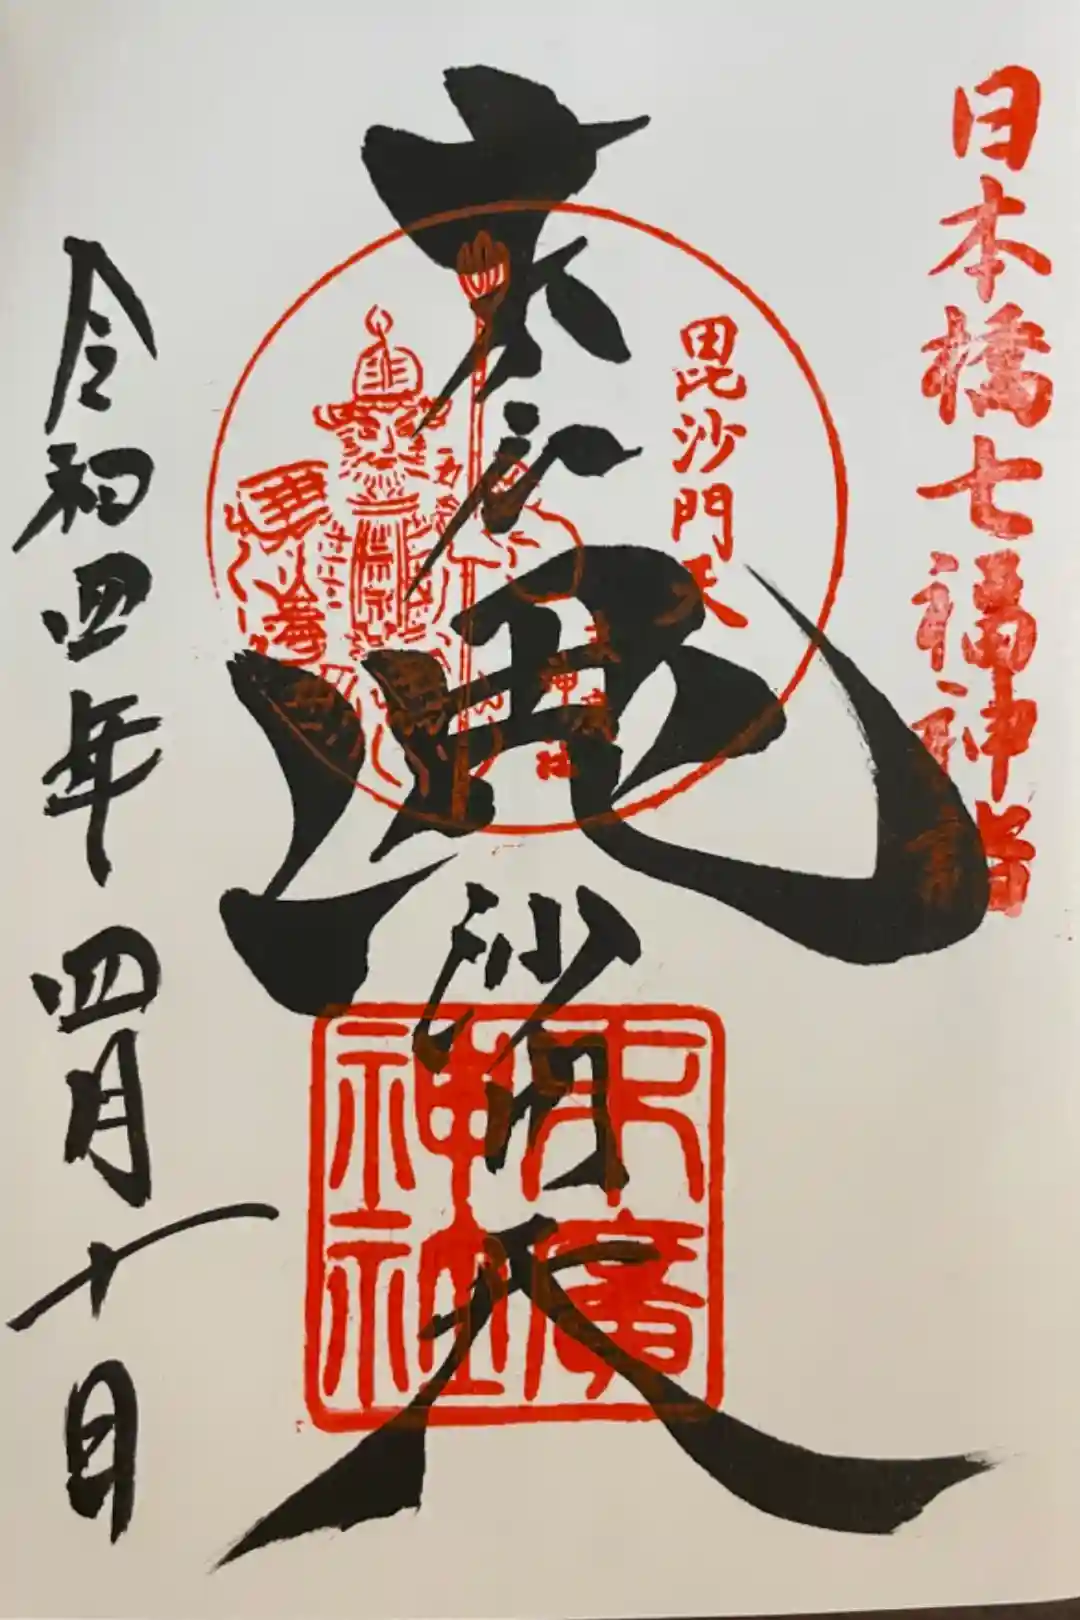 日本橋七福神詣
毘沙門天
末廣神社
毘沙門天
末廣神社
令和四年四月十日